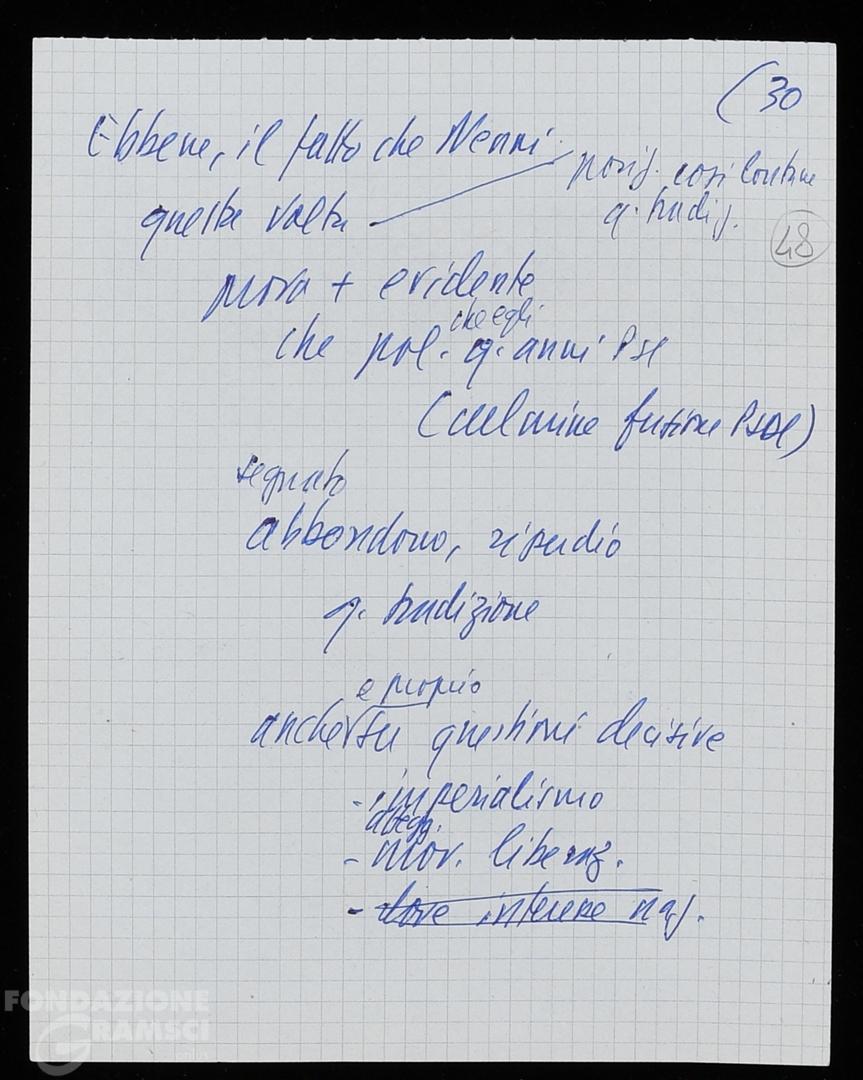 (30
Ebbene, il fatto che Nenni
posiz. così lontane
q. tradiz.
questa volta
48
prova + evidente
che egli
che pol. q. anni PSI
(culmine fusione PSDI)
segnato
abbandono, ripudio
q. tradizione
e proprio
anche su questioni decisive
- imperialismo
ategg.
- mov. liberaz.
- dove interesse naz.
FONDAZIONE
GRAMSCI